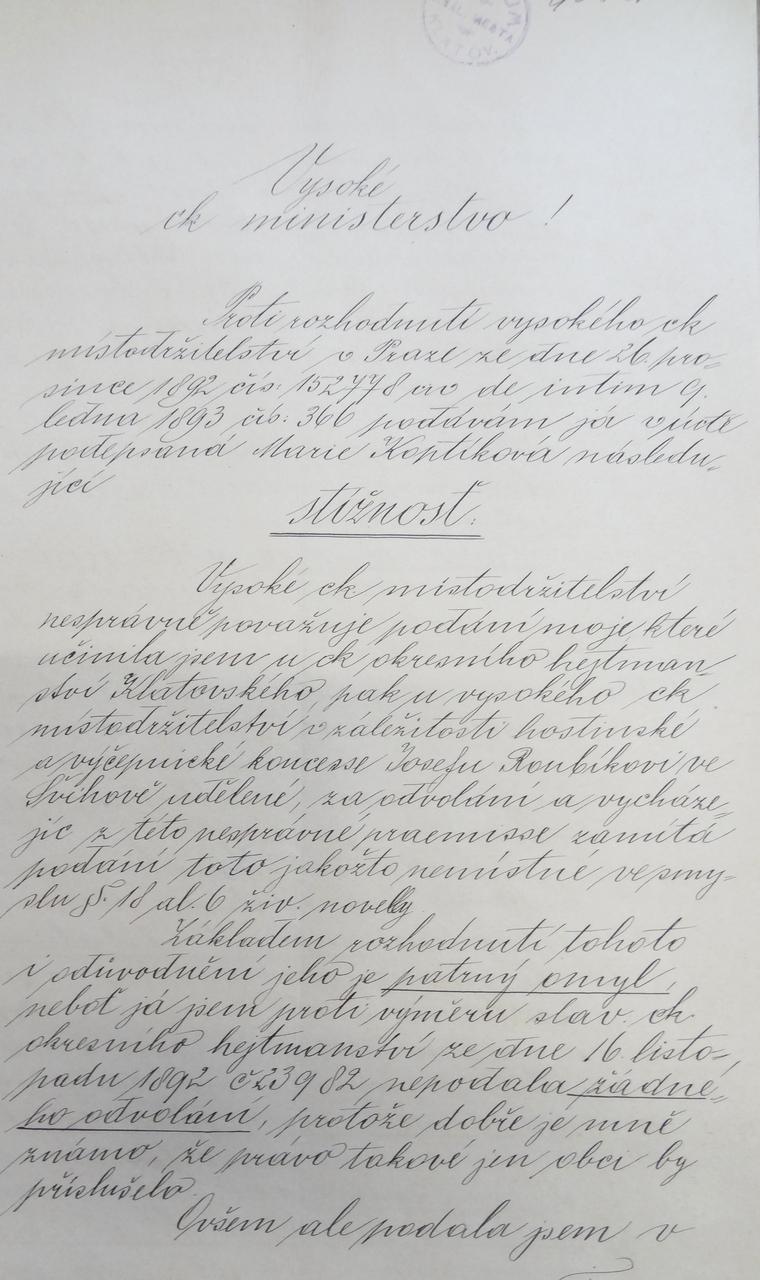 Vysoké
ck ministerstvo!
Proti rozhodnutí vysokého ck
místodržitelství v Praze ze dne 26. pro-
since 1892 čís: 152778 de intim 9.
ledna 1893 čís: 366 podávám já v úctě
podepsaná Marie Koptíková následu-
jící
stížnost.
Vysoké ck místodržitelství
nesprávně považuje podání moje, které
učinila jsem u ck okresního hejtman-
ství Klatovského, pak u vysokého ck
místodržitelství v záležitosti hostinské
a výčepnické koncesse Josefu Roubíkovi ve
Švihově udělené, za odvolání a vycháze-
jíc z této nesprávné praemisse zamítá
podání toto jakožto nemístné ve smy-
slu §. 18 al. 6 živ. novelly
Základem rozhodnutí tohoto
i odůvodnění jeho je patrný omyl,
neboť já jsem proti výměru slav. ck
okresního hejtmanství ze dne 16. listo-
padu 1892 č 23982 nepodala žádné-
ho odvolání, protože dobře je mně
známo, že právo takové jen obci by
příslušelo.
Ovšem ale podala jsem v